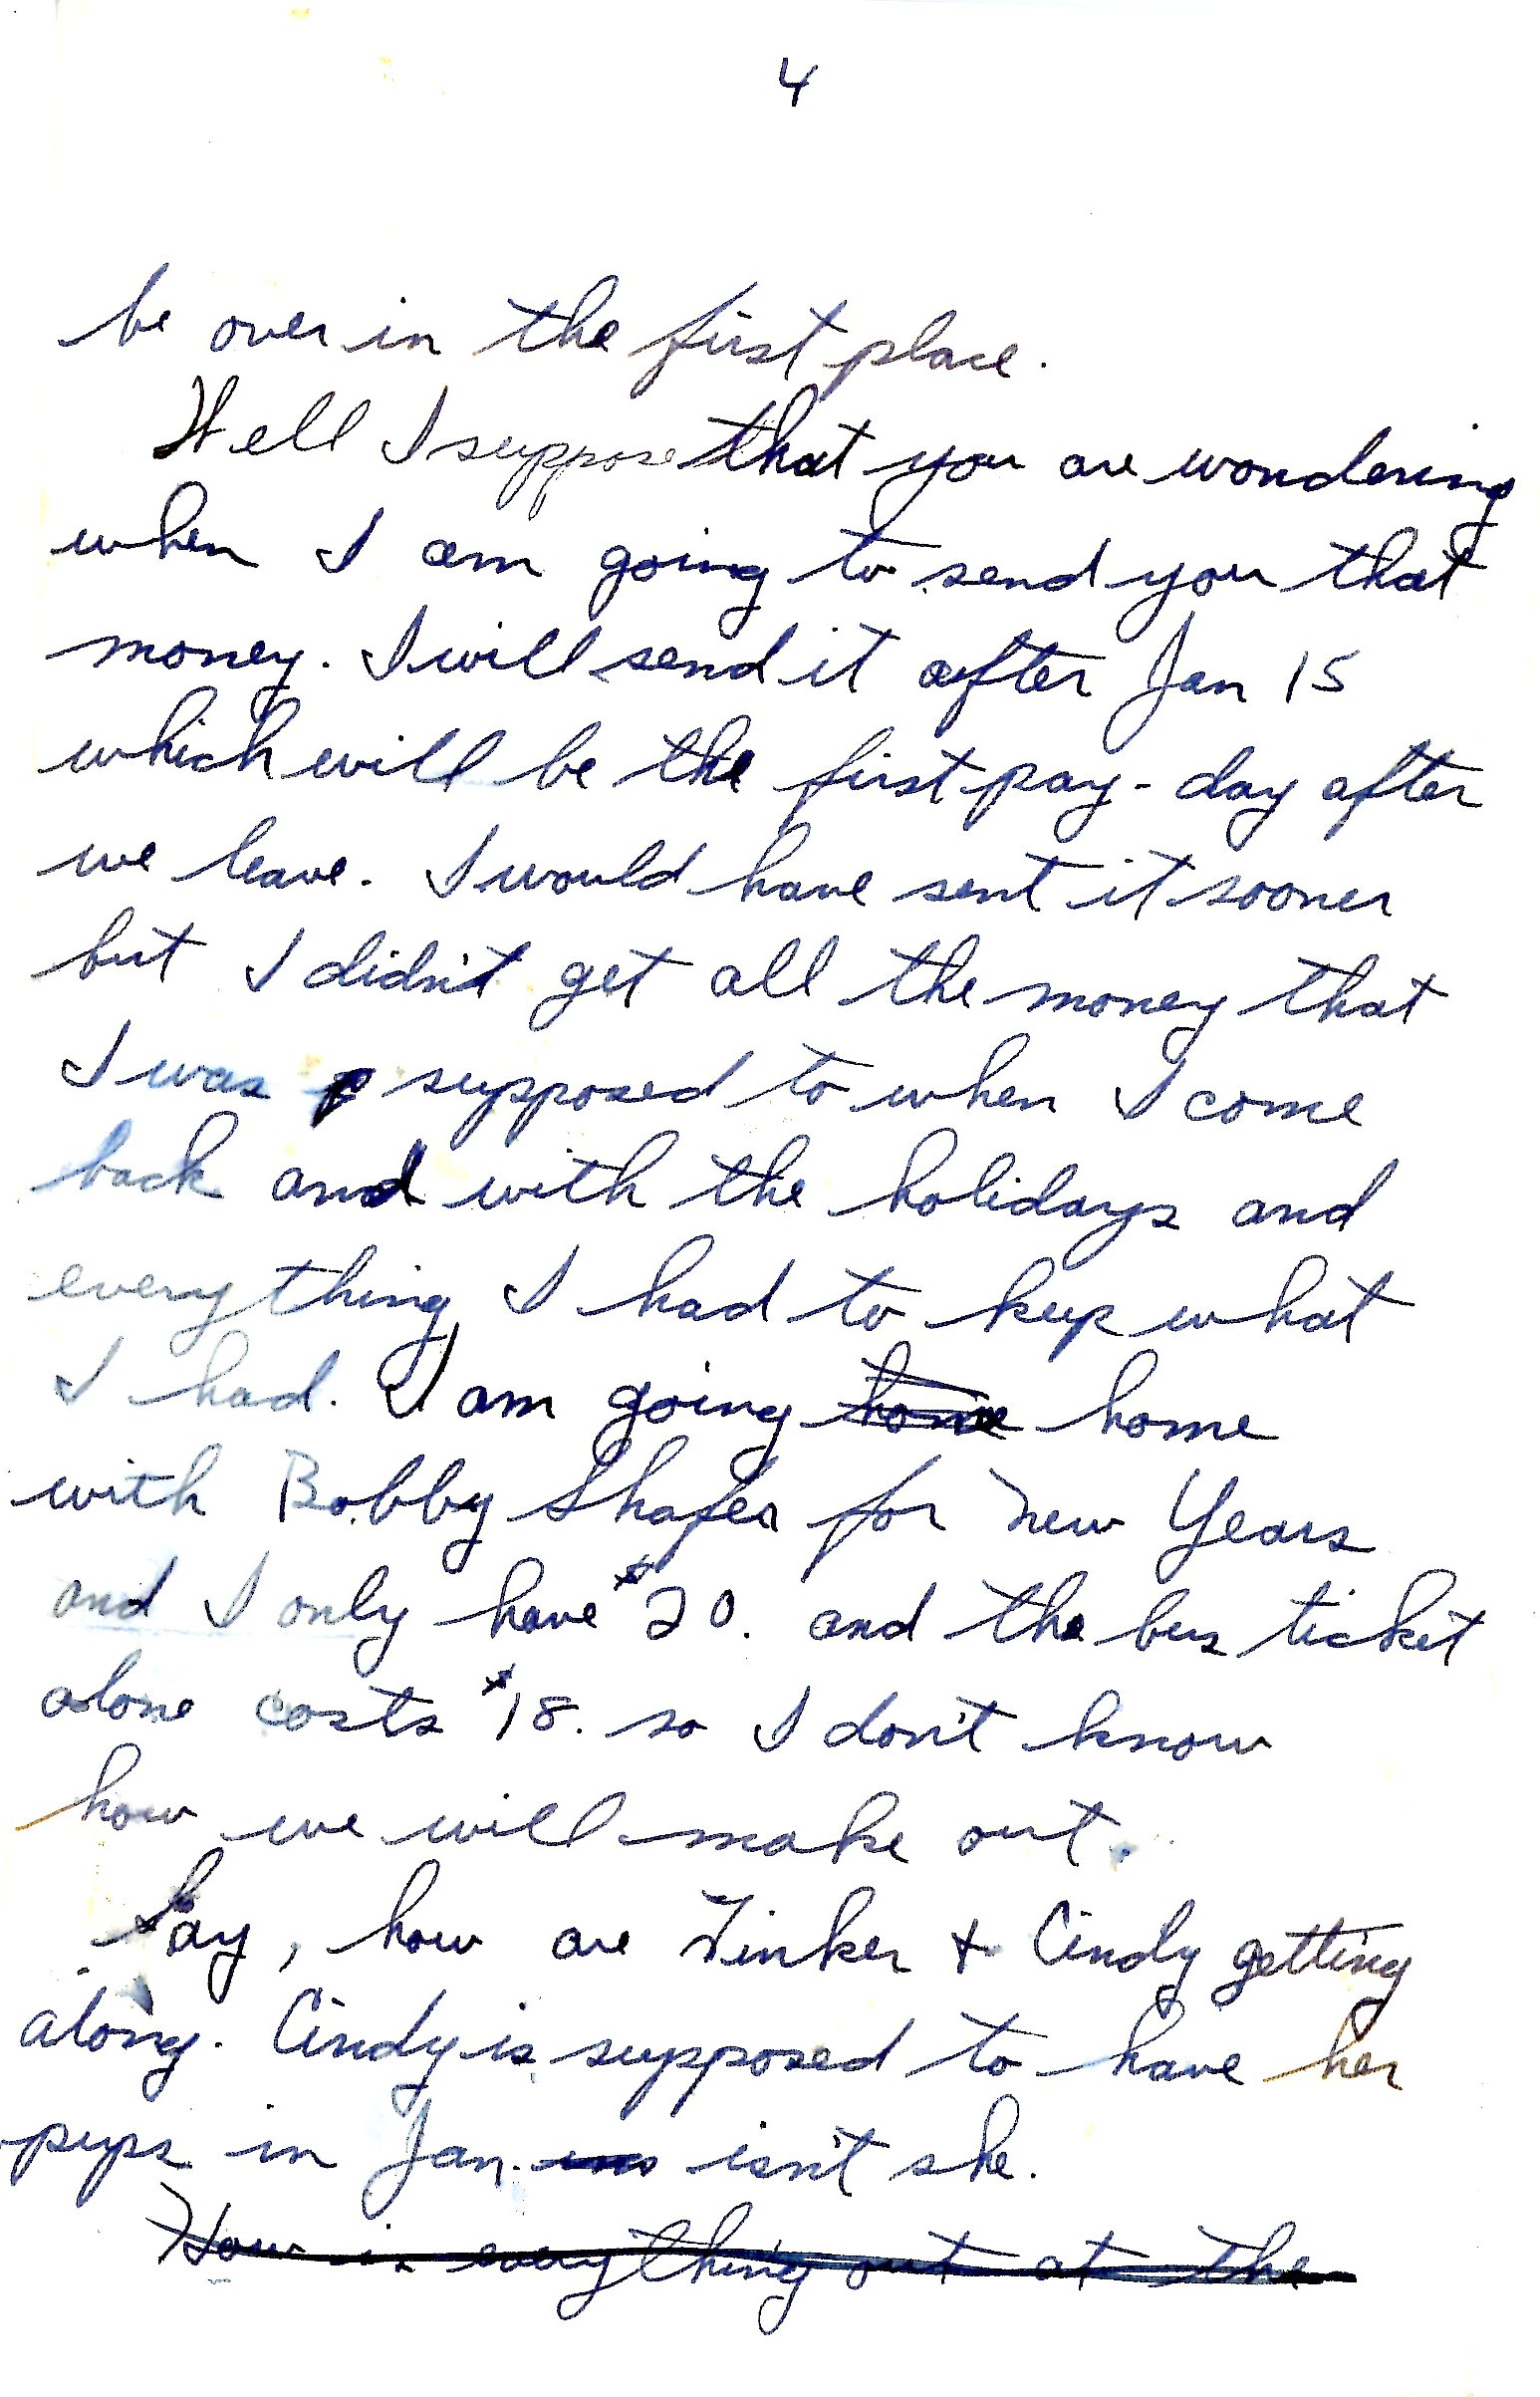 4
be over in the first place.
Well I suppose that you are wondering
when I am going to send you that
money. I will send it after Jan 15
which will be the first pay-day after
we leave. I would have sent it sooner
but I didn't get all the money that
I was supposed to when I come
back and with the holidays and
everything I had to keep what
I had. I am going home home
with Bobby Shafer for New Years
and I only have $20. and the bus ticket
alone costs $18. so I don't know
how we will make out.
Say, how are Tinker + Cindy getting
along. Cindy is supposed to have her
pups in Jan. isn't she.
How is everything out at the